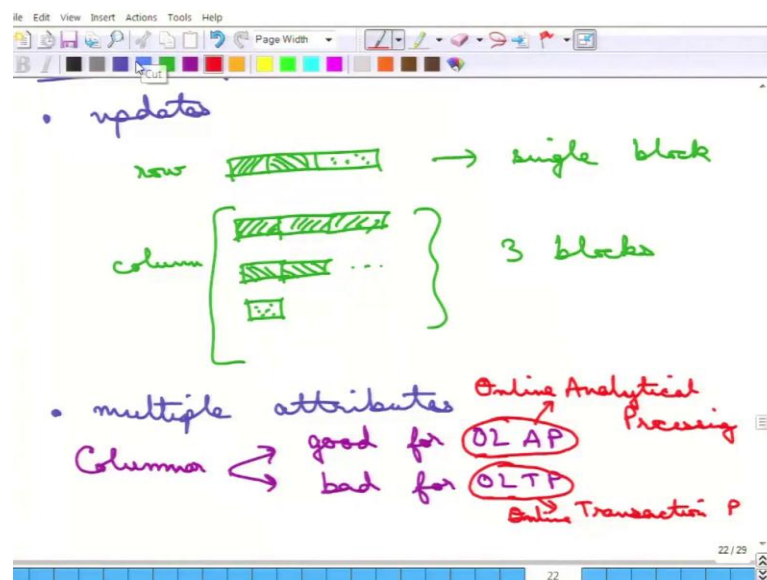 ile Edit View Insert Actions Tools Help
Page Width
B I
Cut
• updates
row → single block
column 3 blocks
• multiple attributes
Online Analytical
Processig
Columnar good for OLAP
bad for OLTP
Online Transaction P
22 / 29
22